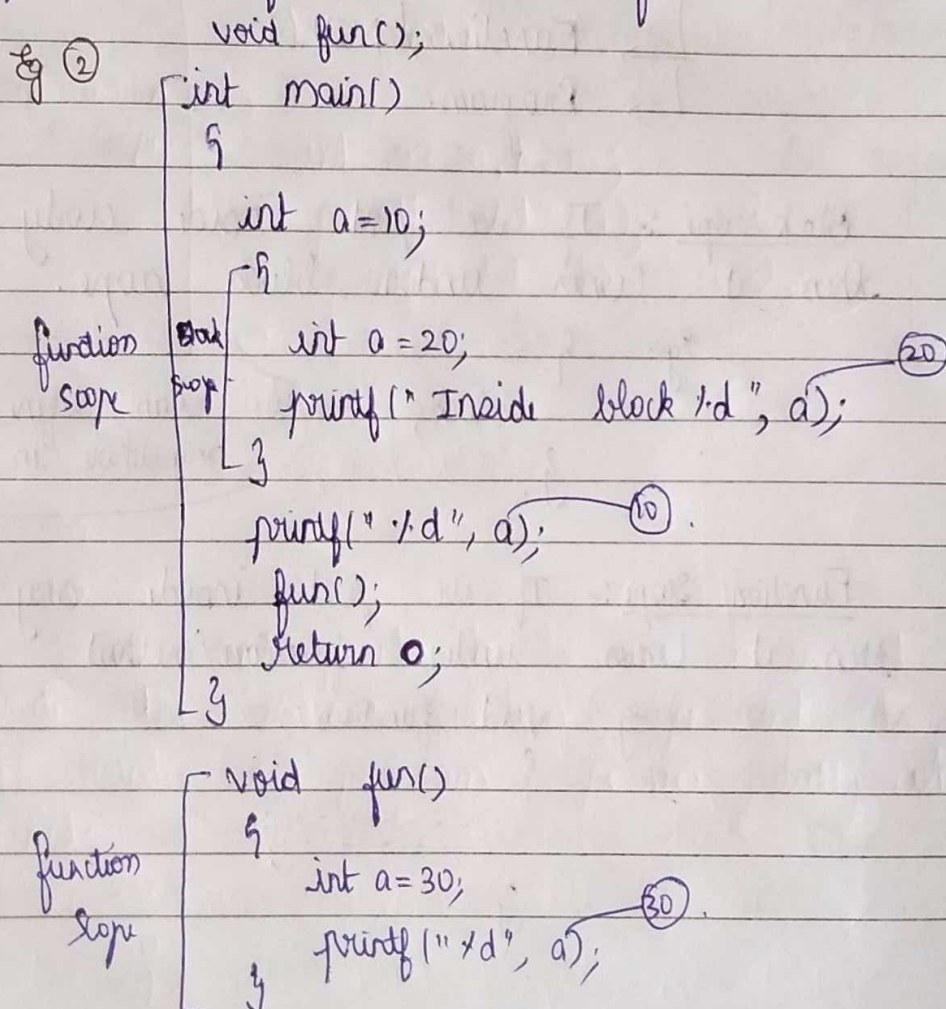 void fun();
Eg ②
int main()
{
int a=10;
{
function scope
Block scope
int a=20;
20
printf(" Inside block %d", a);
}
printf(" %d", a);
10
fun();
return 0;
}
void fun()
{
function
int a=30;
30
scope
printf("%d", a);
}